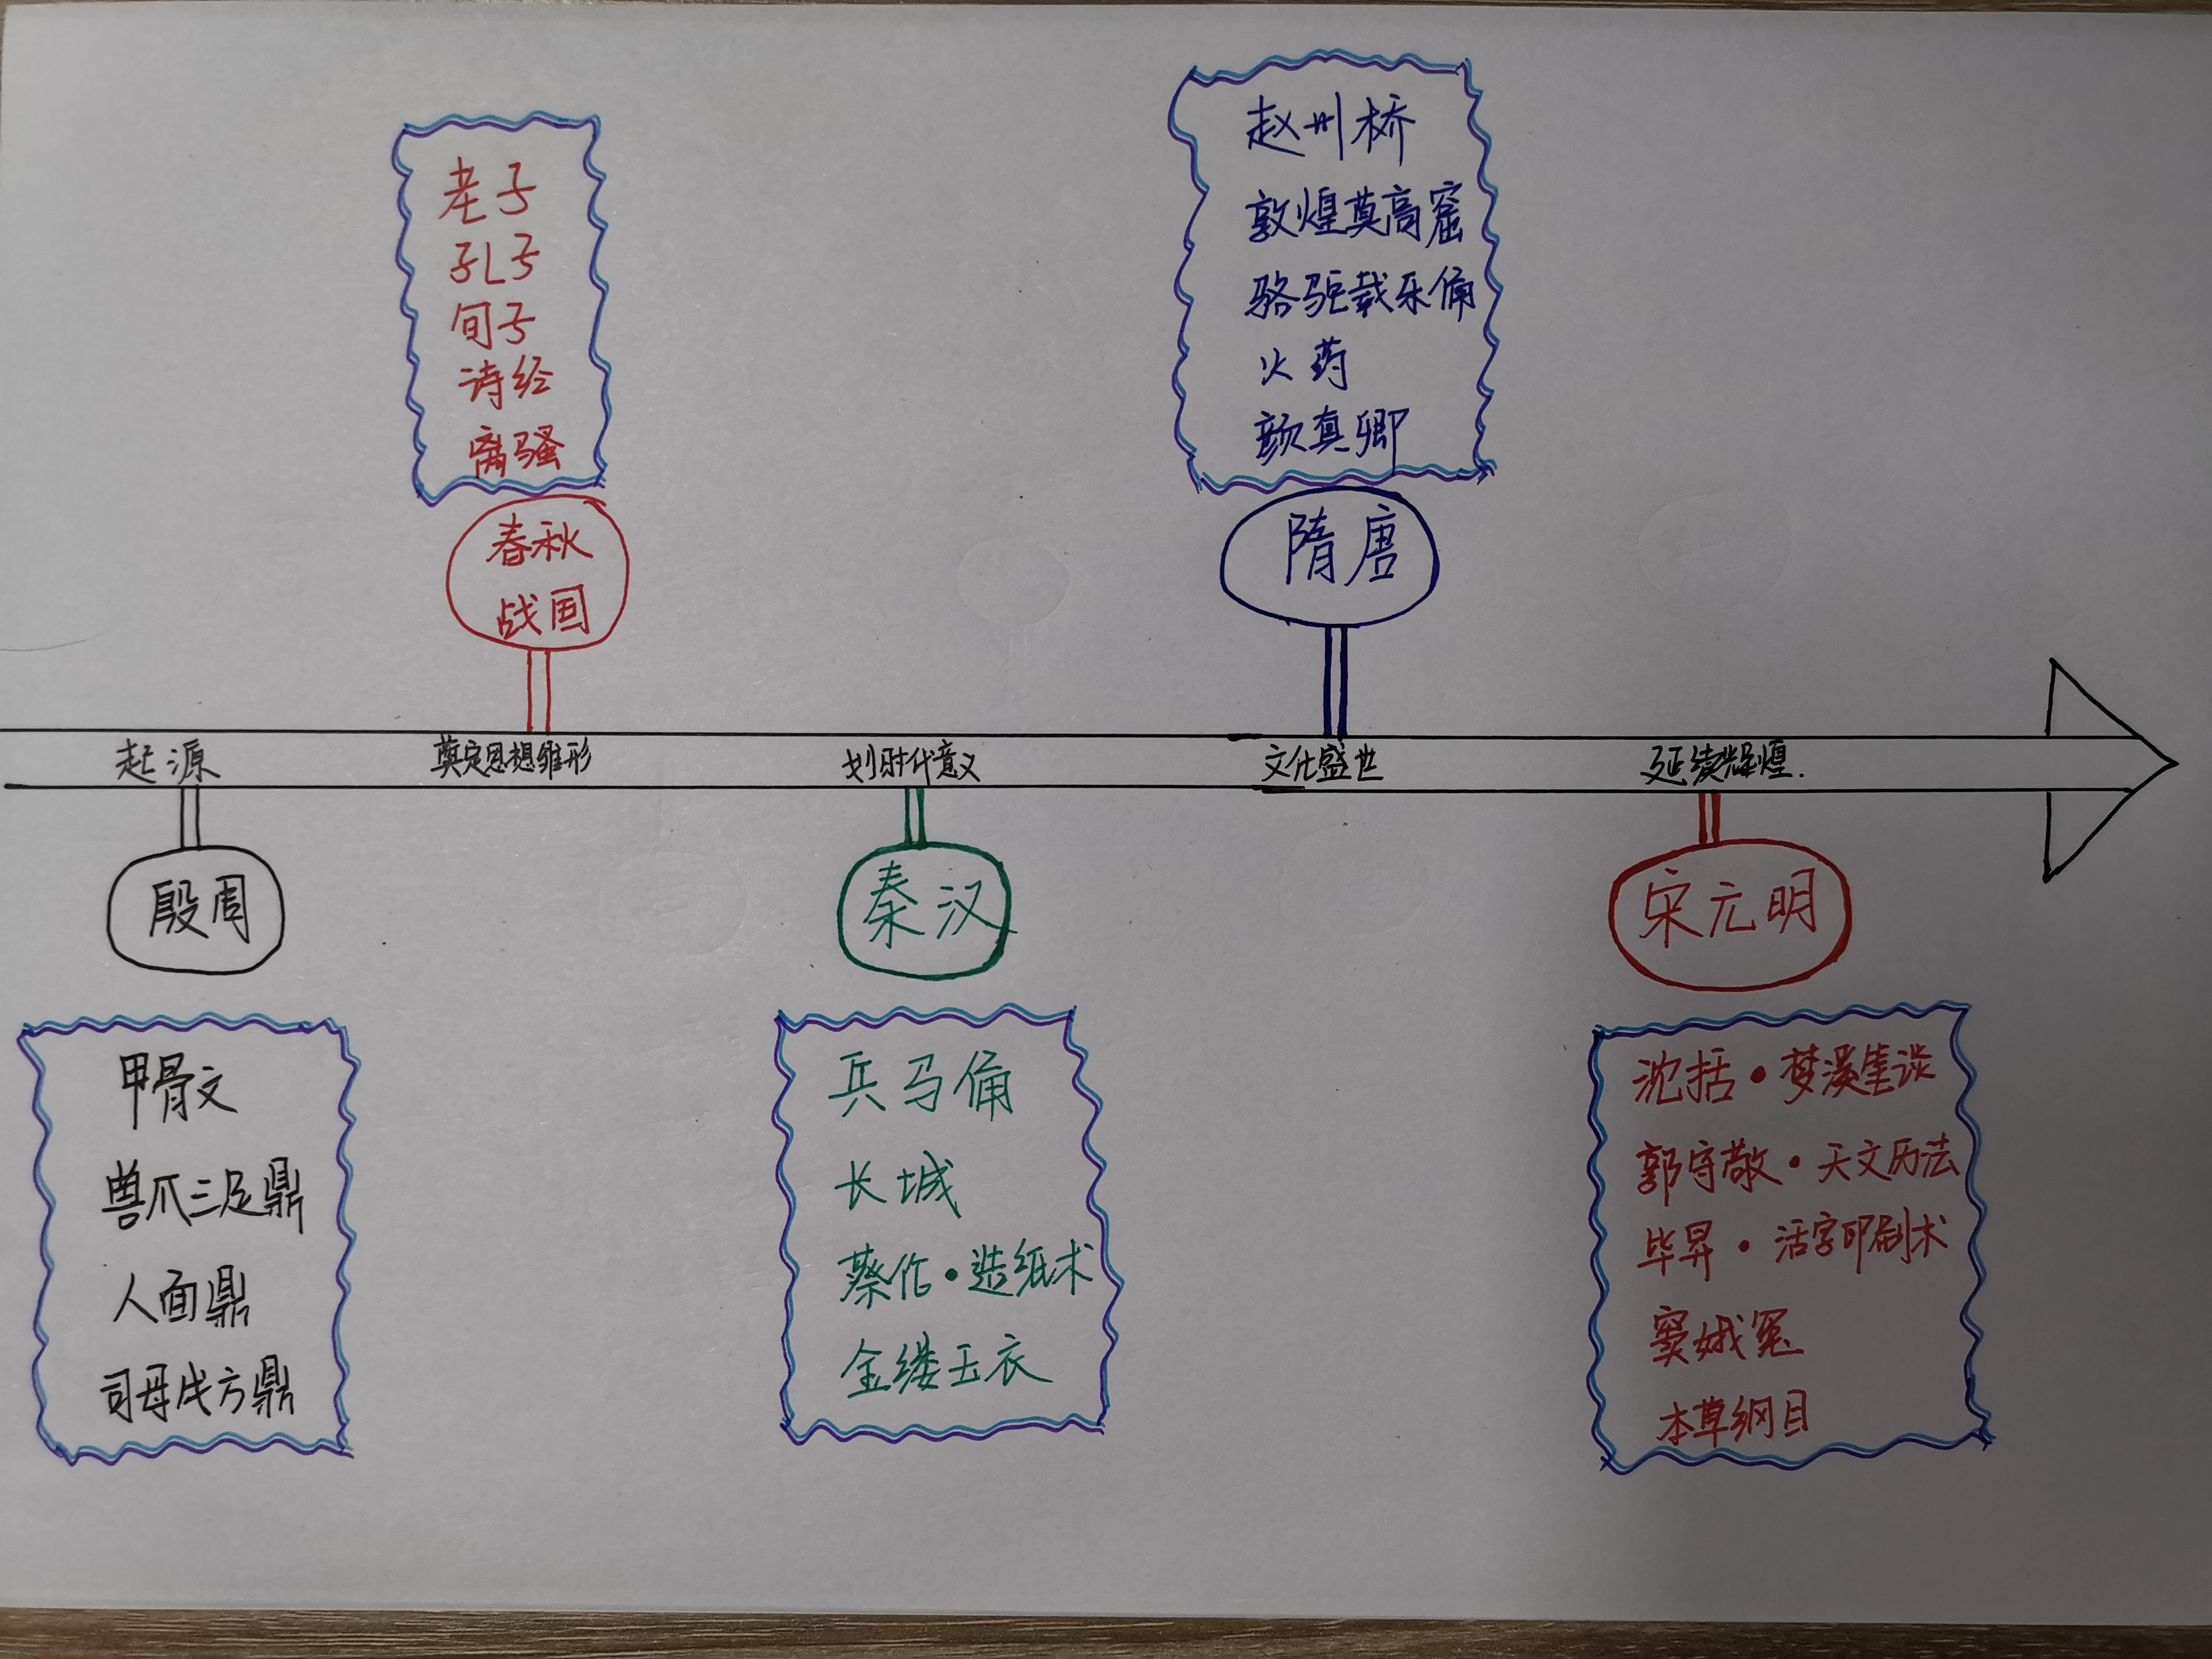 老子
孔子
旬子
诗经
离骚
春秋
战国
赵州桥
敦煌莫高窟
骆驼载乐俑
火药
颜真卿
隋唐
起源
奠定思想雏形
划时代意义
文化盛世
延续辉煌.
殷周
甲骨文
兽爪三足鼎
人面鼎
司母戊方鼎
秦汉
兵马俑
长城
蔡伦·造纸术
金缕玉衣
宋元明
沈括·梦溪笔谈
郭守敬·天文历法
毕昇·活字印刷术
窦娥冤
本草纲目